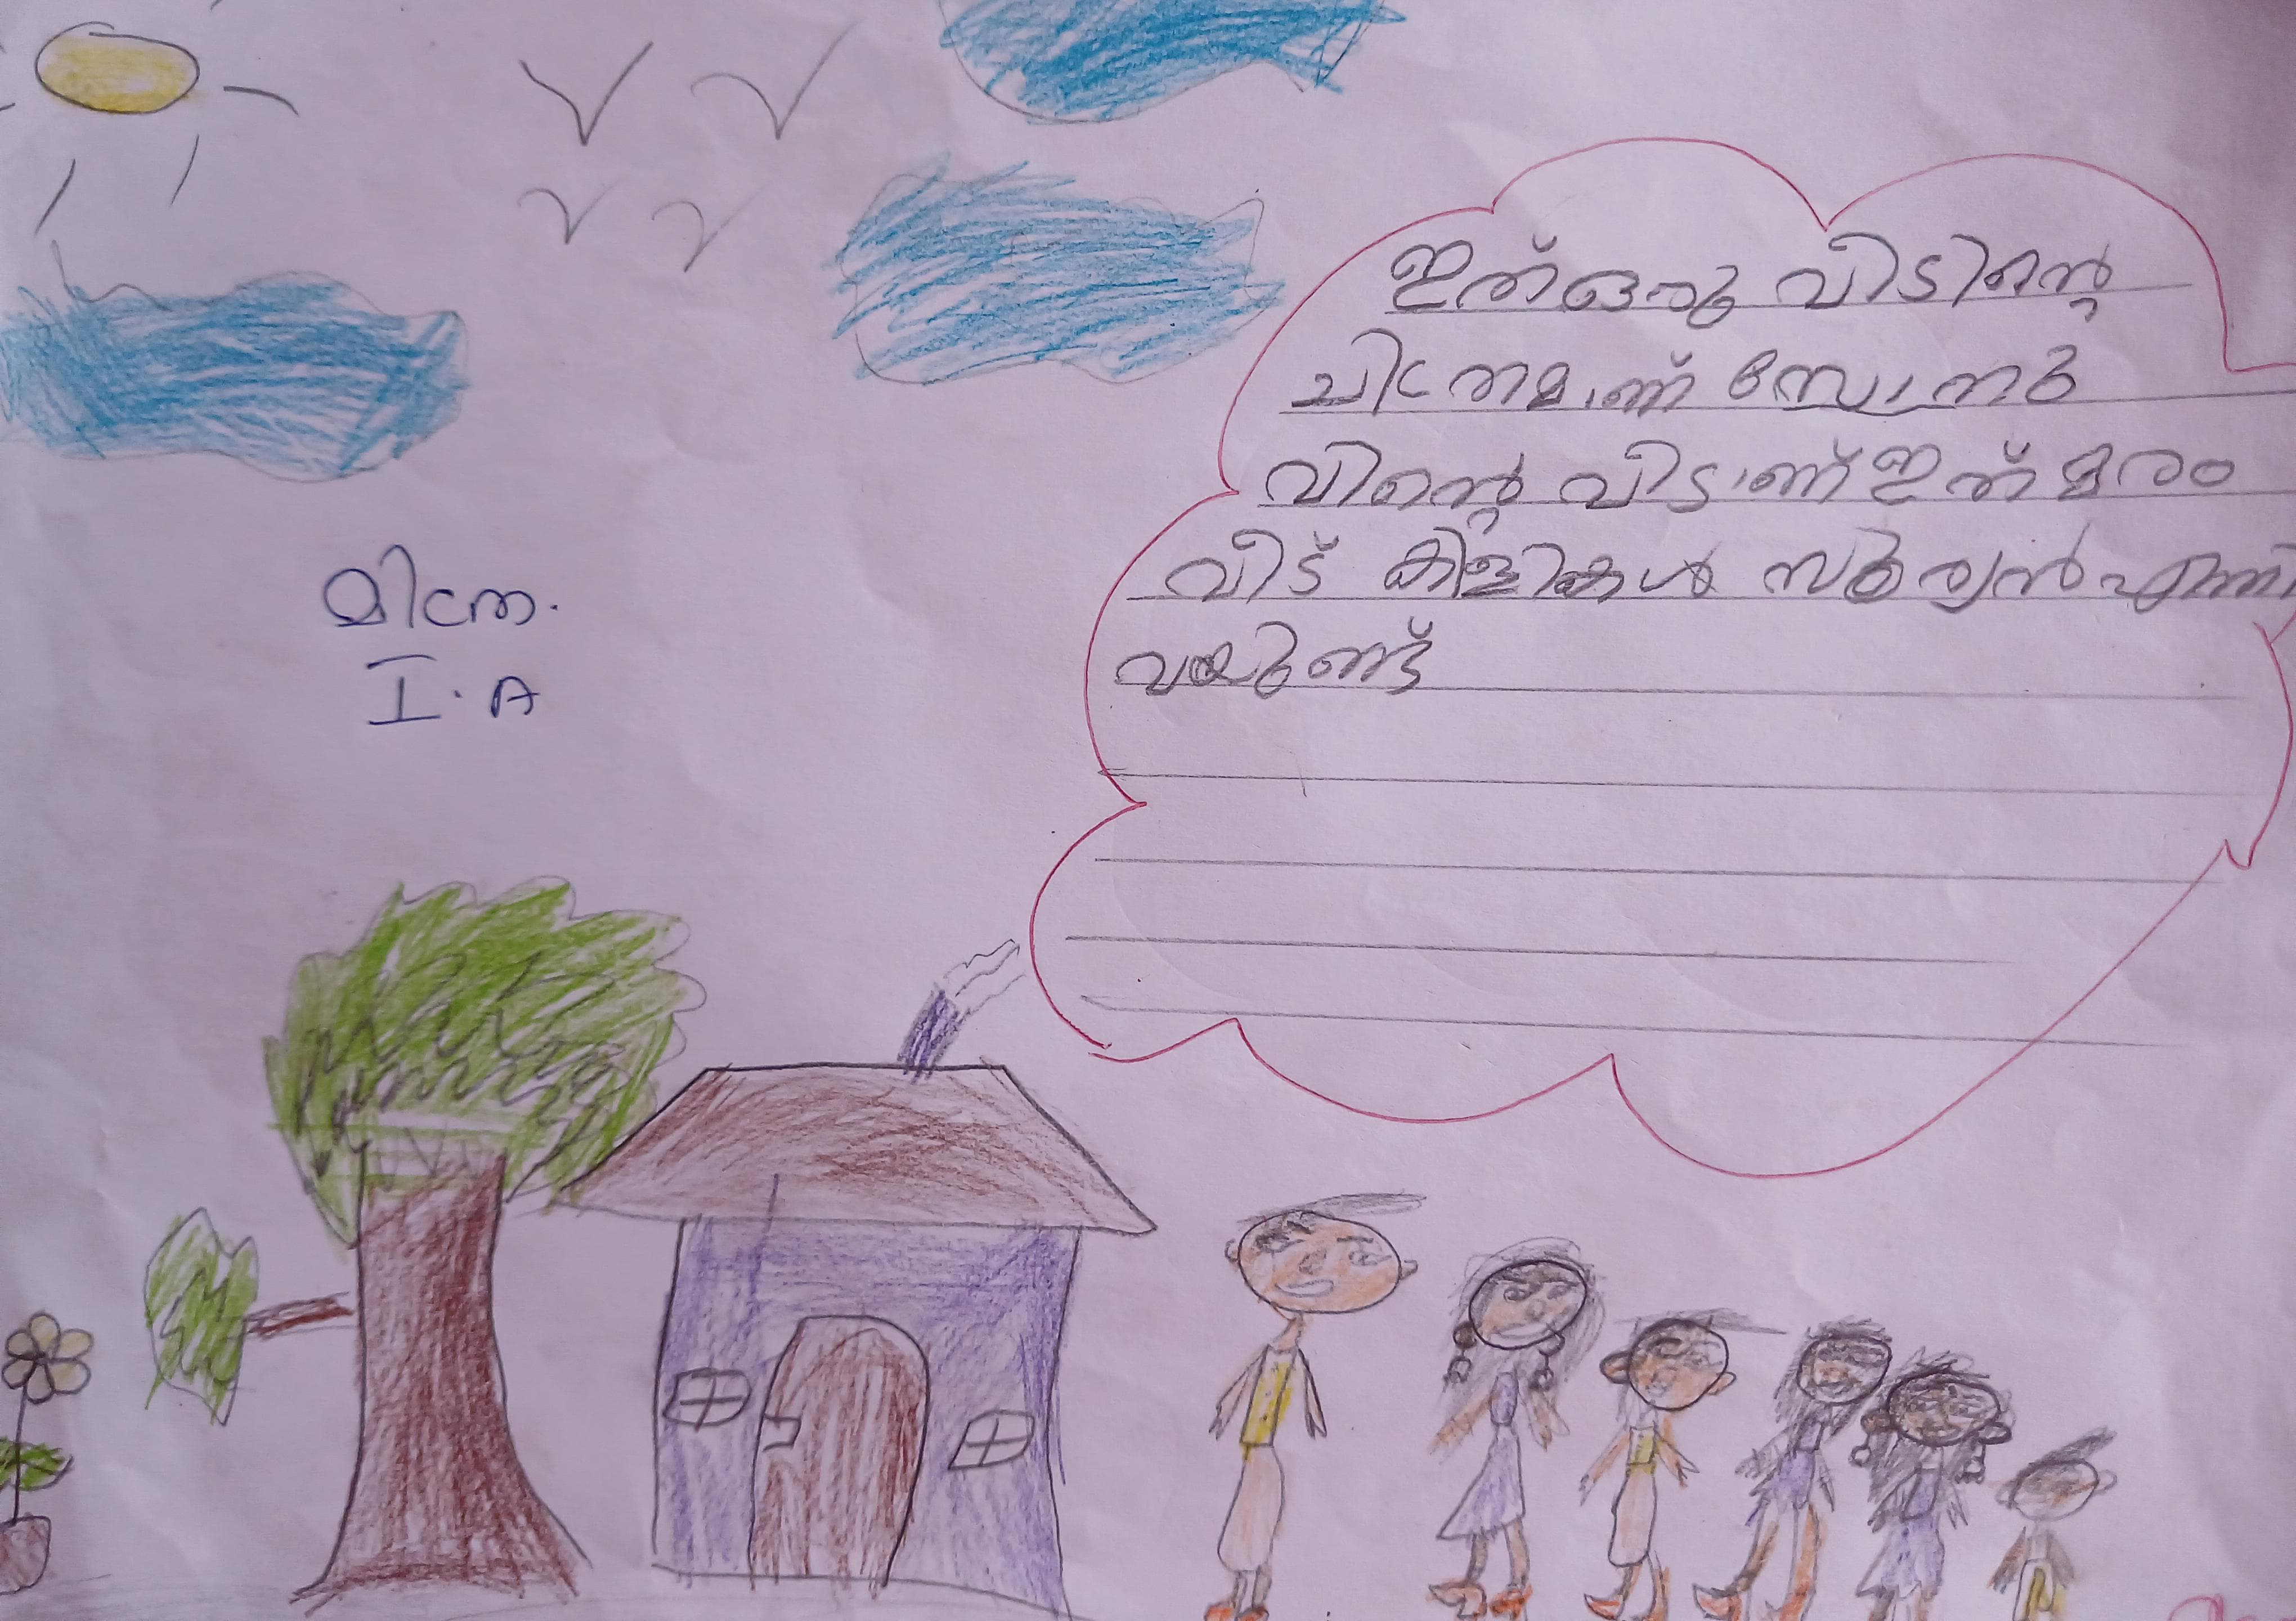 ഇത് ഒരു വീടിന്റെ
ചിത്രമാണ് സോനു
വിന്റെ വീടാണ് ഇത് മരം
വീട് കിളികൾ സൂര്യൻ എന്നി
വയുണ്ട്
മിത്ര.
I. A